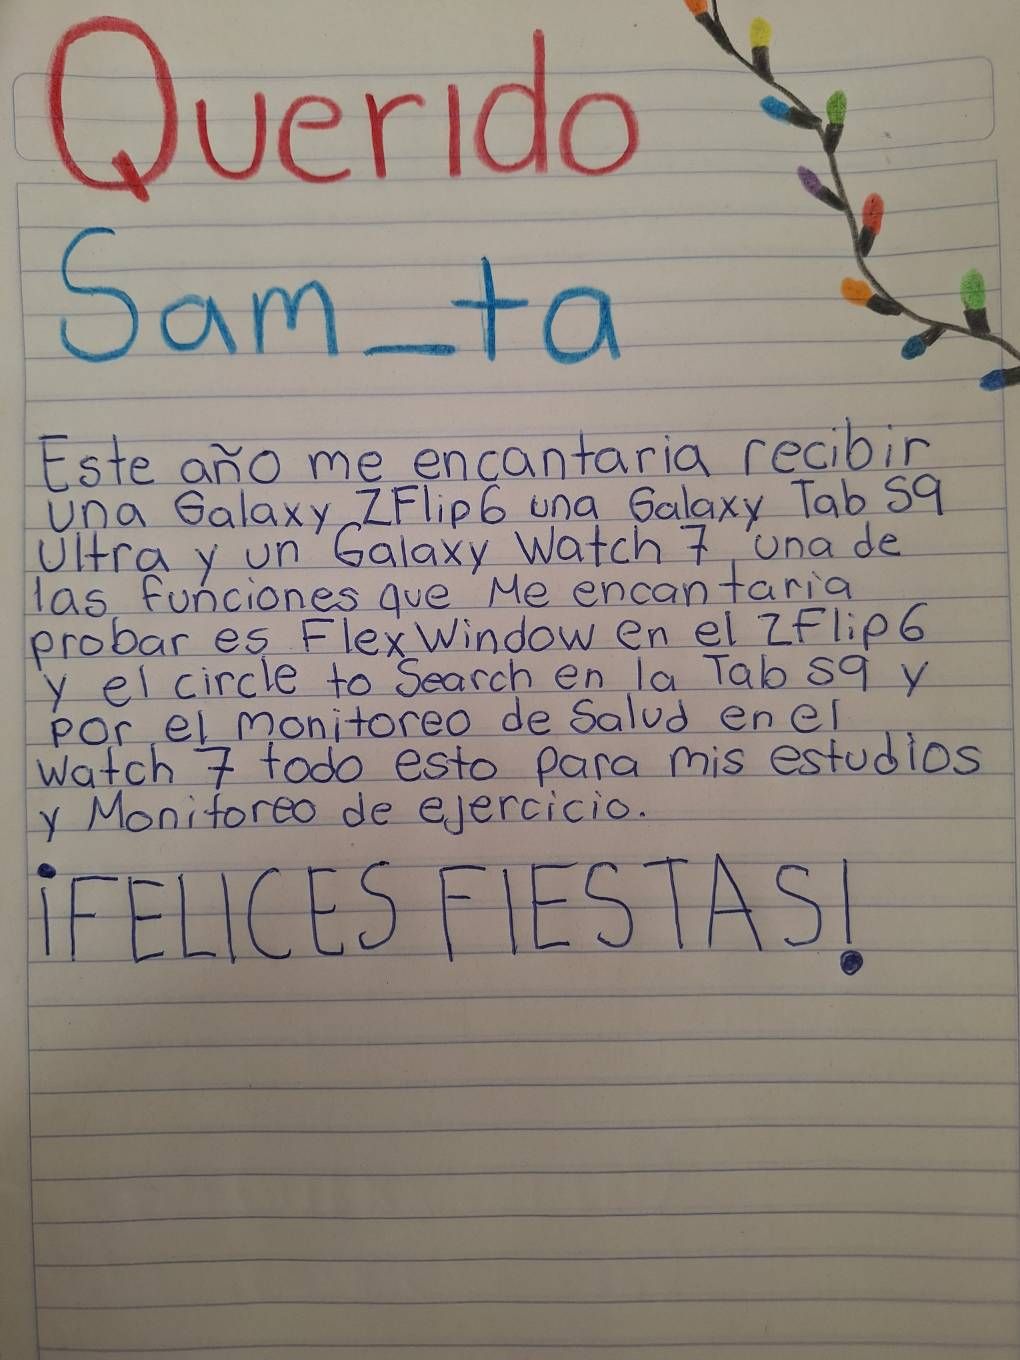 Querido
Sam_ta
Este año me encantaria recibir
una Galaxy ZFlip6 una Galaxy Tab S9
Ultra y un Galaxy Watch 7, una de
las funciones que Me encantaria
probar es FlexWindow en el ZFlip6
y el circle to Search en la Tab S9 y
por el monitoreo de Salud en el
Watch 7 todo esto para mis estudios
y Monitoreo de ejercicio.
¡FELICES FIESTAS!